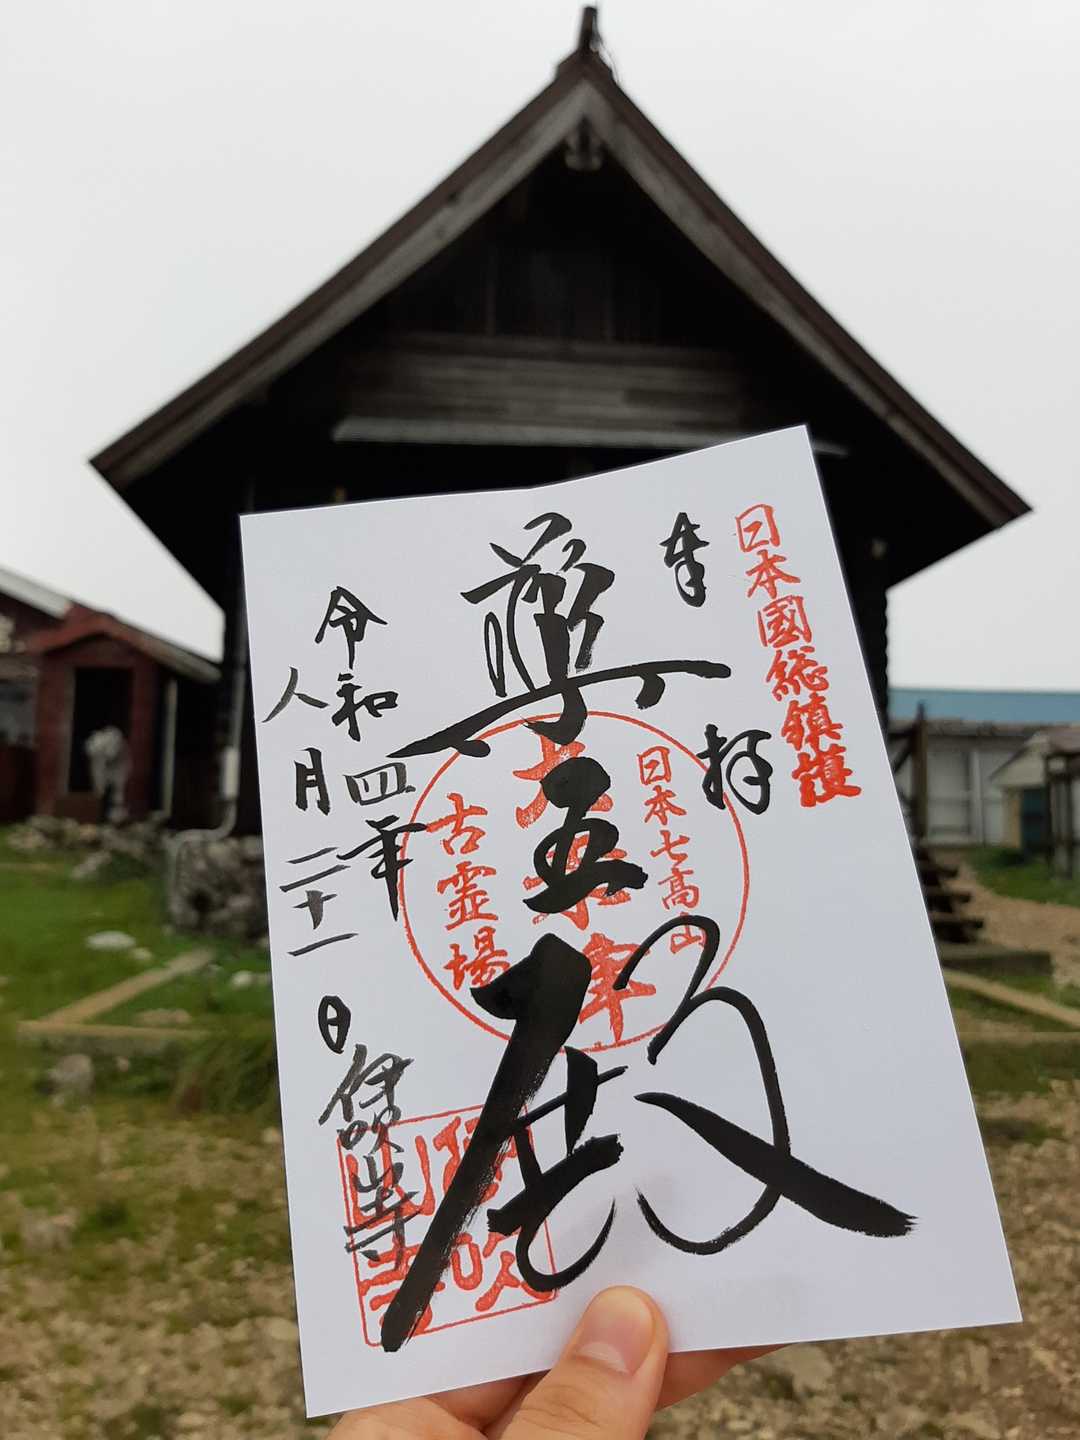 日本國総鎮護
奉拝
尊五殿
日本七高山
古霊場
令和四年
八月二十一日
伊吹山寺
伊吹
山寺